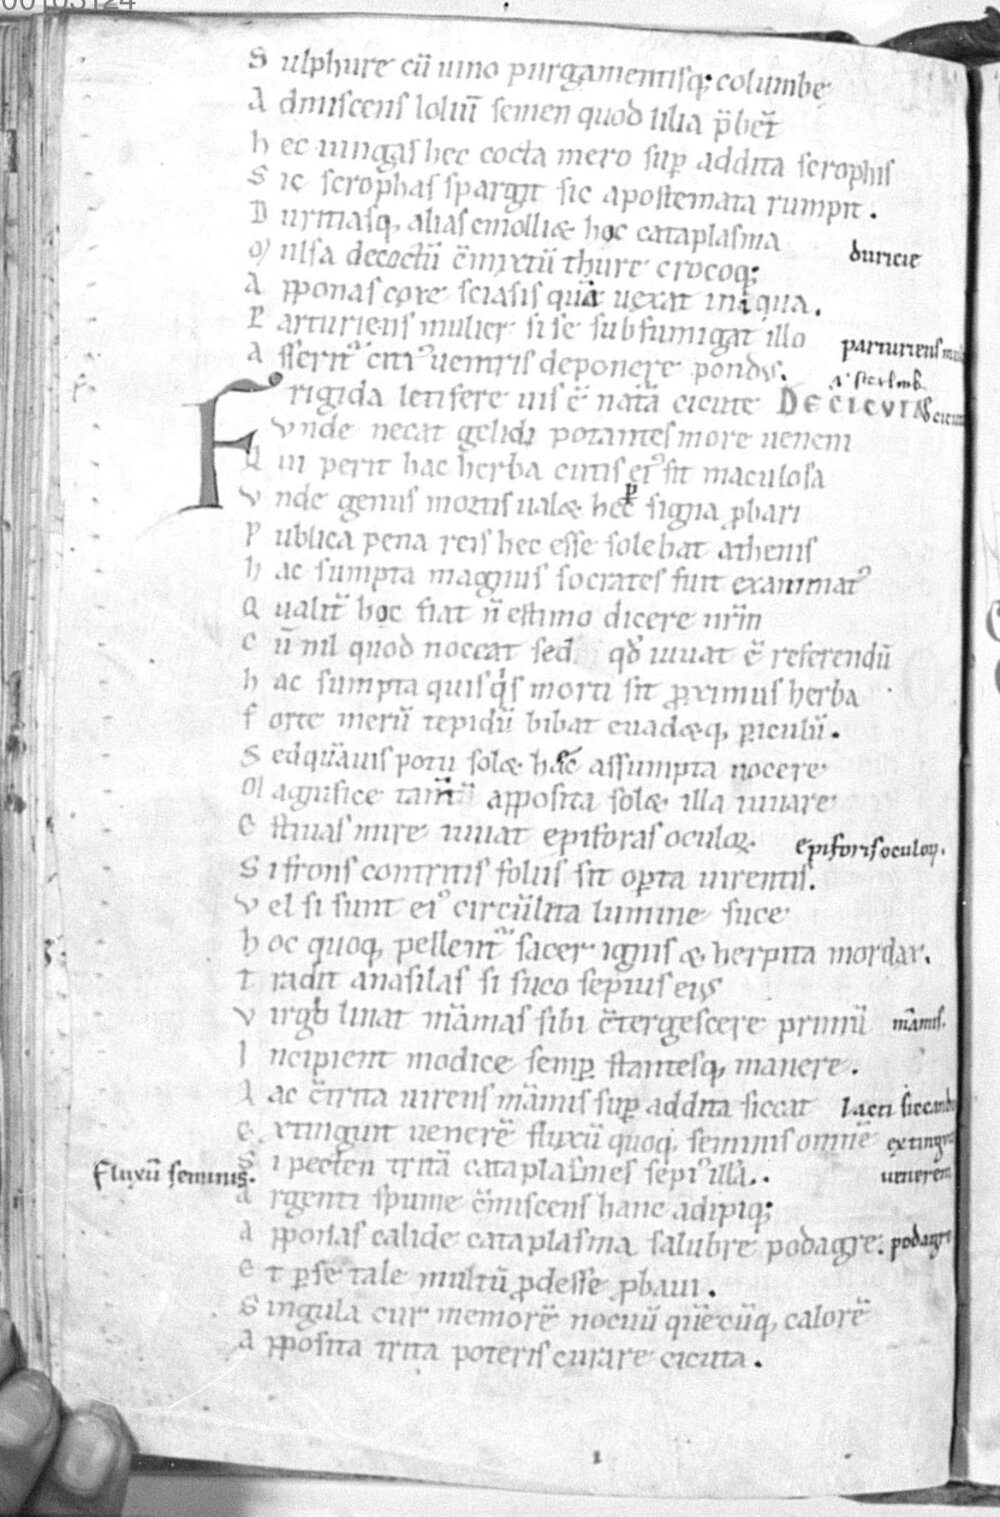 00103124
S ulphure cū uino purgamentisq; columbe
A dmiscens loliū semen quod lilia p̄bet̄
h ec iungas hec cocta mero sup addita scrophis
S ic scrophas spargit sic apostemata rumpit.
D uritiasq, alias emolliæ hoc cataplasma
duricie
M ulsa decoctū c̄mixtū thure crocoq;
A pponas coxe sciasis quā uexat iniqua.
P arturiens mulier si se subfumigat illo
parturiens
A sserit᷒ citi᷒ uentris deponere pondus.
F rigida letifere uis ē nat̄a cicute DE CICUTA
v nde necat gelidi potantes more ueneni
Q ui perit hac herba cutis ei᷒ fit maculosa
v nde genus mortis ualæ hec p signa pbari
P ublica pena reis hec esse solebat athenis
h ac sumpta magnus socrates fuit exanimat᷒
Q ualit̄ hoc fiat n̄ estimo dicere nr̄m
C ū nil quod noceat sed qđ iuuat ē referendū
h ac sumpta quisqis morti sit pximus herba
f orte merū tepidū bibat euadæq, piculū.
S ed quāuis potu solæ hæc assumpta nocere
M agnifice tam̄ apposita solæ illa iuuare
E stiuas mire iuuat epiforas oculoꝝ.
epiforis oculoꝝ.
S i frons contritis foliis sit opta uirentis.
v el si sunt ei᷒ circūlita lumine suco
h oc quoq, pellent᷒ sacer ignis æ herpita mordax.
t radit anaxilas si suco sepius eius
v irgo linat m̄amas sibi c̄tergescere primū
m̄amis.
I ncipient modice semp stantesq, manere.
L ac c̄trita uirens m̄amis sup addita siccat
Lacti siccando
E xtinguit uenerē fluxū quoq, seminis omnē
extingue
S i pecten tritā cataplasmes sepi᷒ illā.
uenerem
Fluxū seminis.
A rgenti spume c̄miscens hanc adipiq;
A pponas calide cataplasma salubre podagre.
podagre
E t pse tale multū pdesse pbaui.
S ingula cur memorē nocuū quēcūq, calorē
A pposita trita poteris curare cicuta.